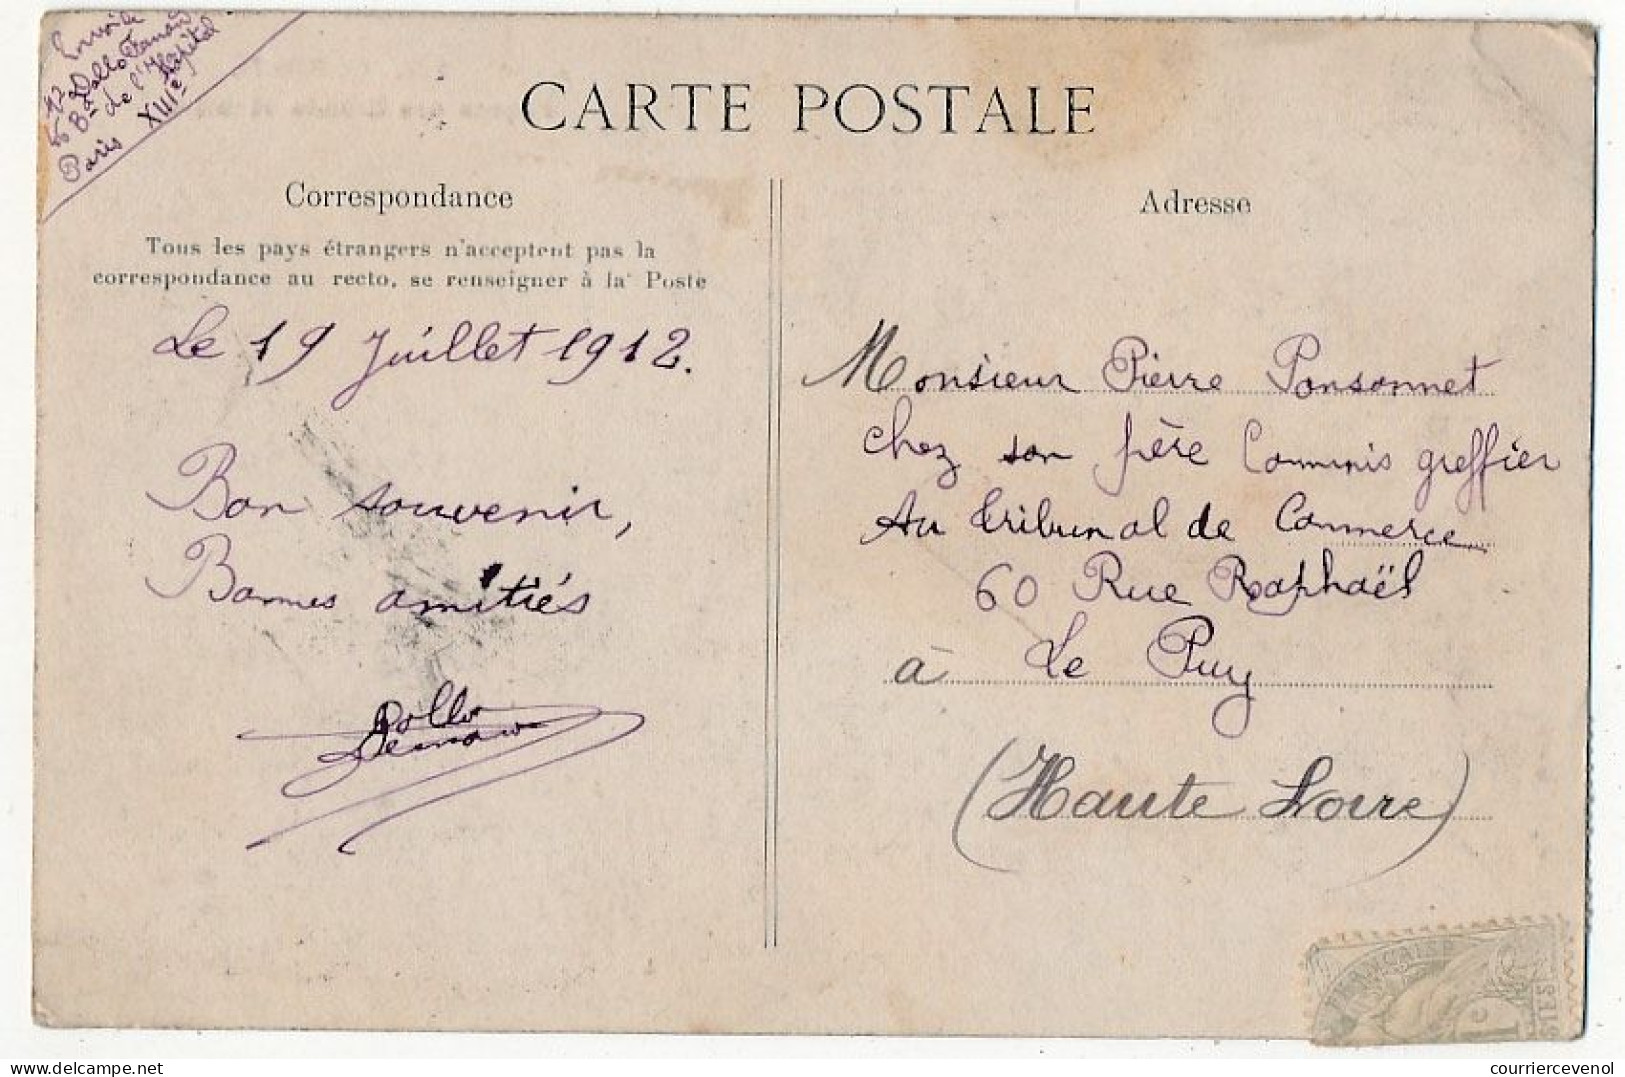 Envoi de
Pollo Fernand
Bd de l'Hôpital
Paris XIIIe
CARTE POSTALE
Correspondance
Tous les pays étrangers n'acceptent pas la
correspondance au recto, se renseigner à la Poste
Le 19 Juillet 1912.
Bon souvenir,
Bonnes amitiés
Pollo
Fernand
Adresse
Monsieur Pierre Ponsonnet
chez son frère Commis greffier
Au tribunal de Commerce
60 Rue Raphaël
à Le Puy
(Haute Loire)
FRANÇAISE
1c
courriercevenol
www.courriercevenol.com